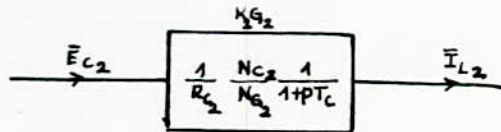 K₂G₂
Ē_C₂ 1/R_C₂ N_C₂/N_G₂ 1/1+pT_C Ī_L₂